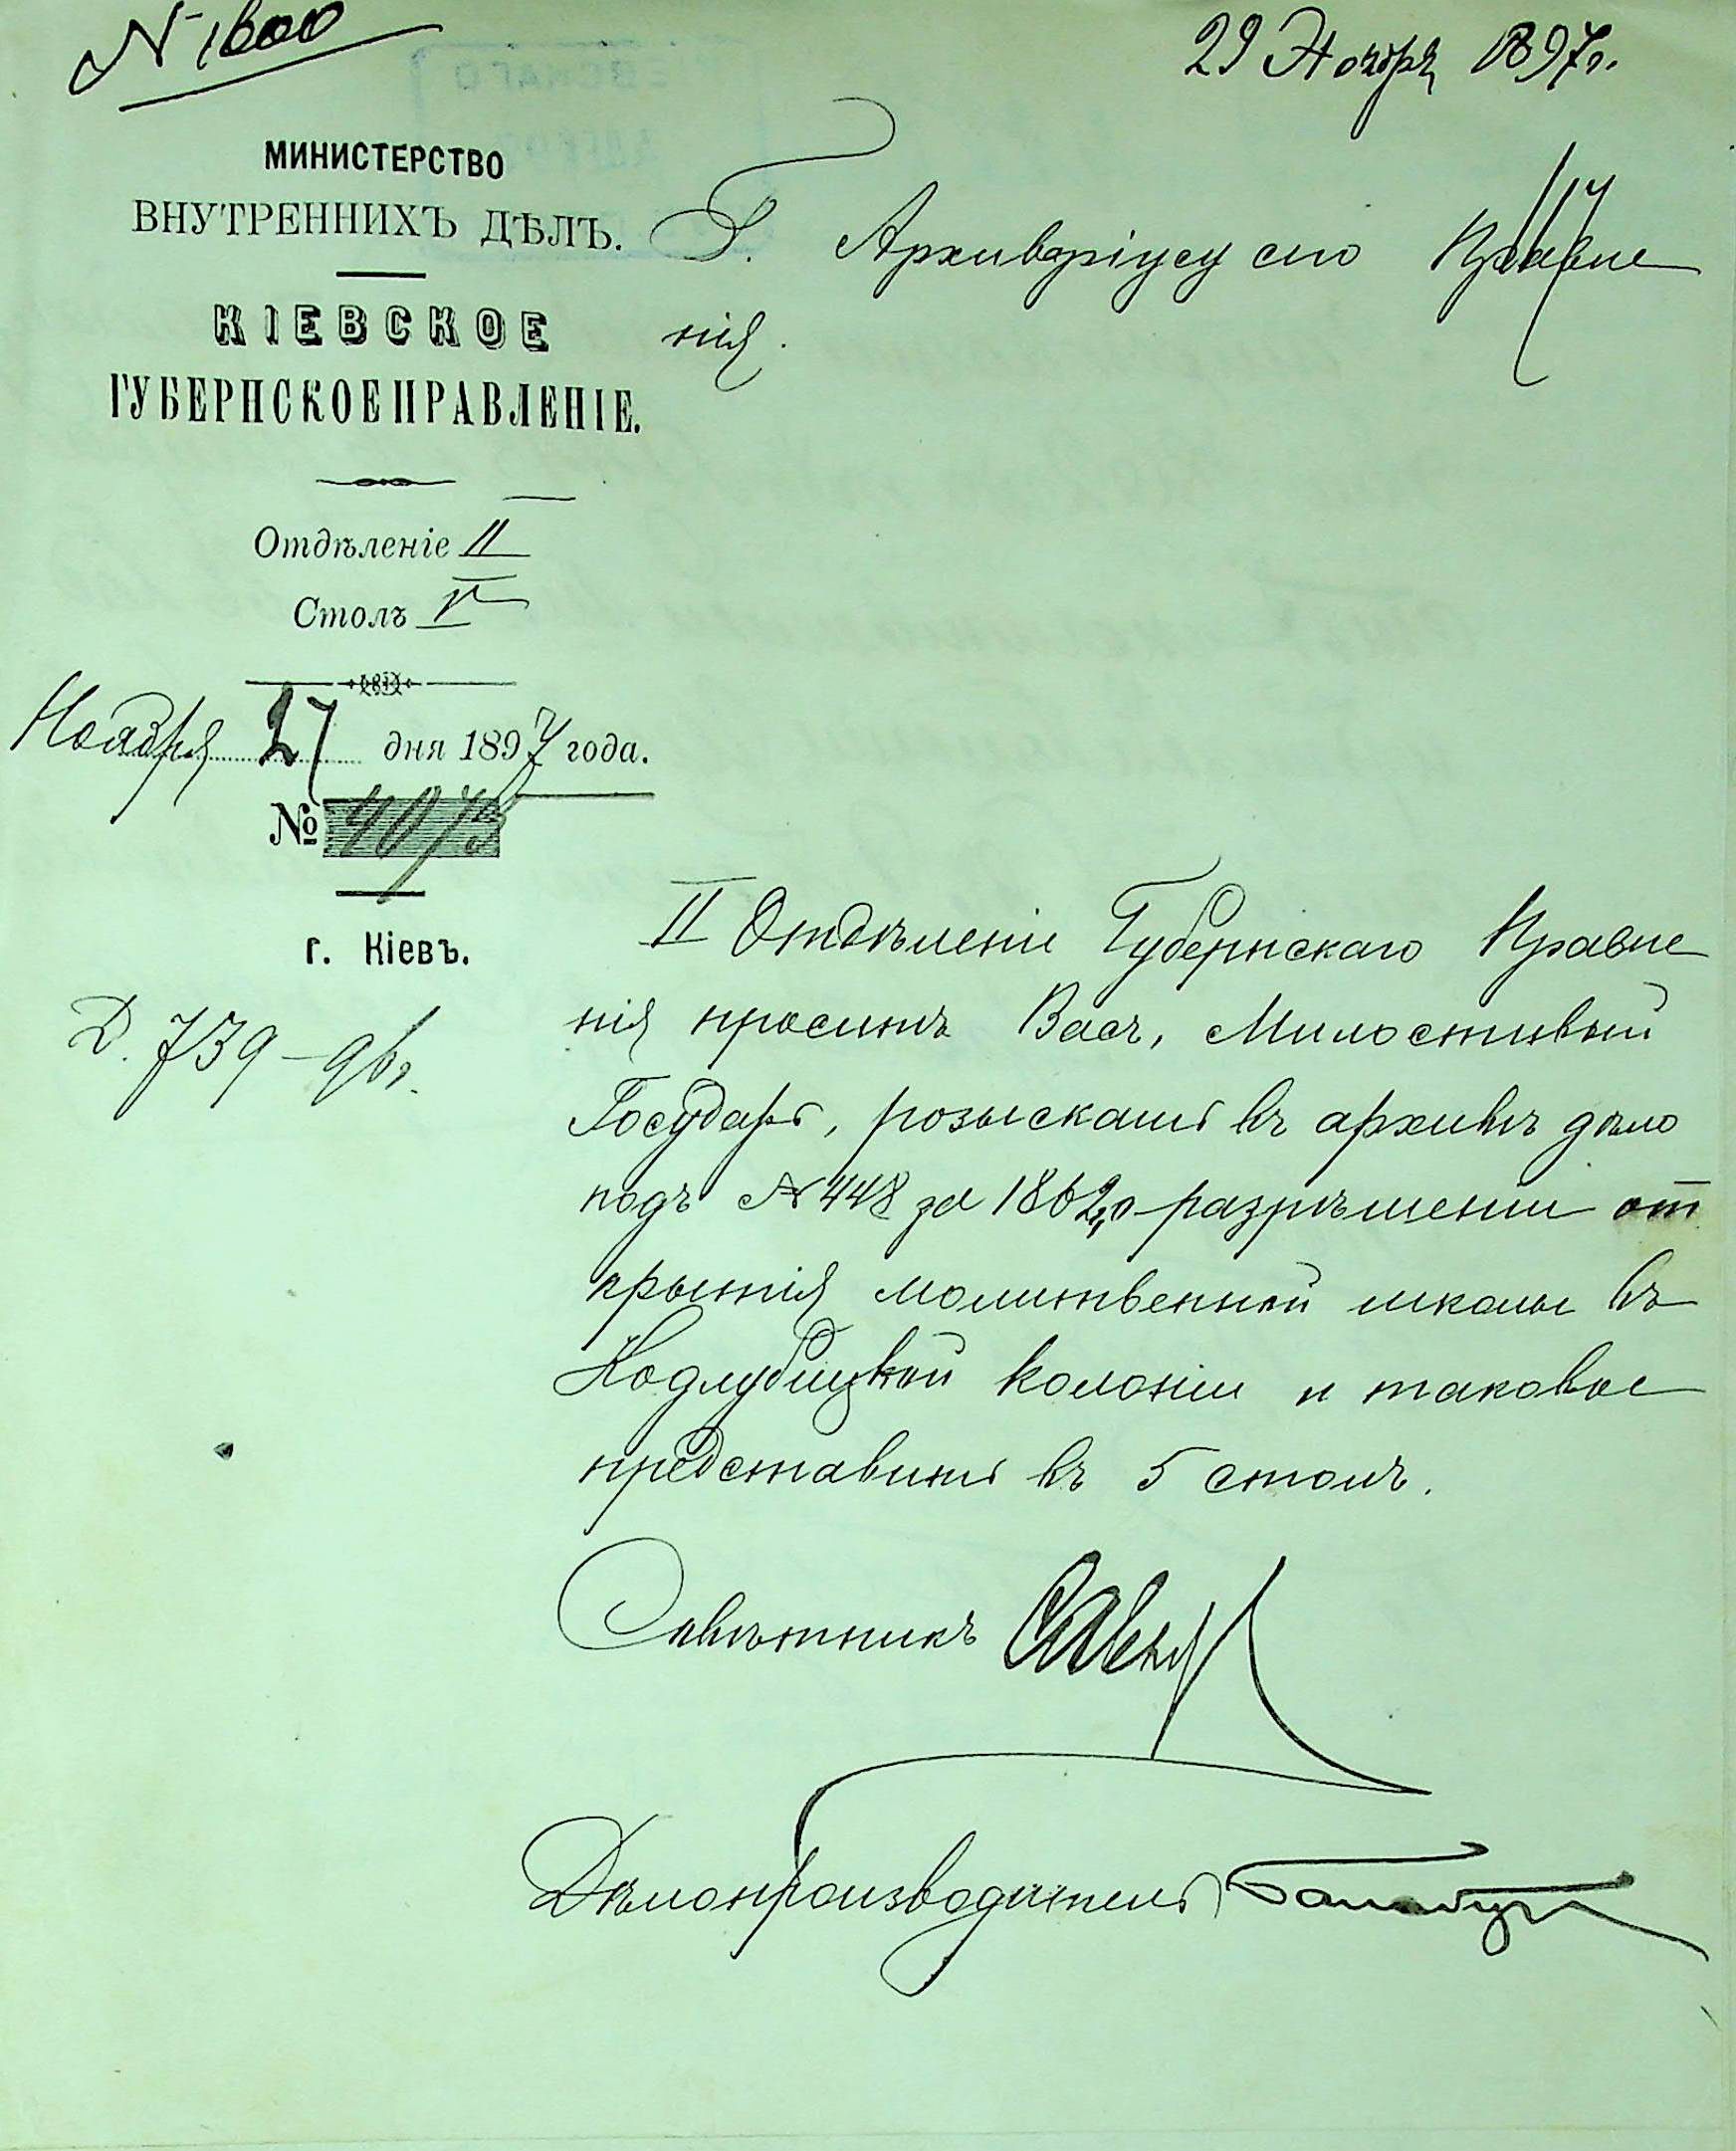 N 1600
29 Ноября 1897 г.
МИНИСТЕРСТВО
ВНУТРЕННИХЪ ДѢЛЪ.
КІЕВСКОЕ
ГУБЕРНСКОЕ ПРАВЛЕНІЕ.
Отдѣленіе II
Столъ V
Ноября 27 дня 1897 года.
№
г. Кіевъ.
Д. 739-96 г.
Г. Архиваріусу сего Правле
нія.
II Отдѣленіе Губернскаго Правле
нія проситъ Васъ, Милостивый
Государь, розыскать въ архивѣ дѣло
подъ N 448 за 1862, о разрѣшеніи от
крытія молитвенной школы въ
Кодлубицкой колоніи и таковое
представить въ 5 столъ.
Совѣтникъ
Дѣлопроизводитель